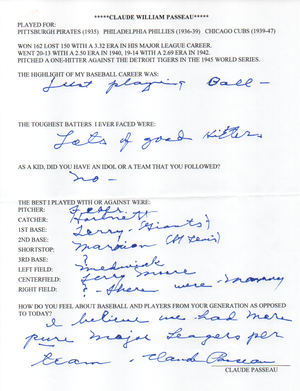 *****CLAUDE WILLIAM PASSEAU*****
PLAYED FOR:
PITTSBURGH PIRATES (1935) PHILADELPHIA PHILLIES (1936-39) CHICAGO CUBS (1939-47)
WON 162 LOST 150 WITH A 3.32 ERA IN HIS MAJOR LEAGUE CAREER.
WENT 20-13 WITH A 2.50 ERA IN 1940, 19-14 WITH A 2.69 ERA IN 1942.
PITCHED A ONE-HITTER AGAINST THE DETROIT TIGERS IN THE 1945 WORLD SERIES.
THE HIGHLIGHT OF MY BASEBALL CAREER WAS:
Just playing Ball -
THE TOUGHEST BATTERS I EVER FACED WERE:
Lots of good hitters
AS A KID, DID YOU HAVE AN IDOL OR A TEAM THAT YOU FOLLOWED?
No -
THE BEST I PLAYED WITH OR AGAINST WERE:
PITCHER: Feller
CATCHER: Hartnett
1ST BASE: Terry (Giants)
2ND BASE: ?
SHORTSTOP: Marion (St Louis)
3RD BASE: ?
LEFT FIELD: Medwick
CENTERFIELD: Terry Moore
RIGHT FIELD: ? - there were many
HOW DO YOU FEEL ABOUT BASEBALL AND PLAYERS FROM YOUR GENERATION AS OPPOSED
TO TODAY?
I believe we had more
pure Major Leagers per
team. Claude Passeau
CLAUDE PASSEAU